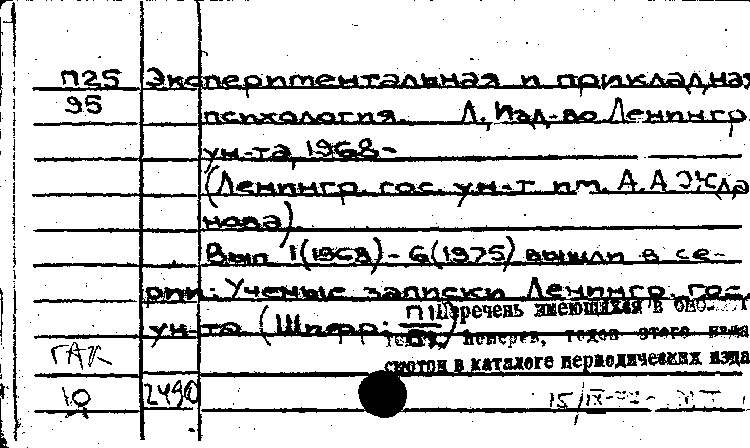 П25 Экспериментальная и прикладная
95 психология. Л., Изд-во Ленингр.
ун-та, 1968-
(Ленингр. гос. ун-т им. А.А.Жда
нова).
Вып 1(1968)-6(1975) вышли в се-
рии: Ученые записки Ленингр. гос.
ун-та (Шифр: П1
Перечень имеющихся в
номеров, годов этого изда
смотри в каталоге периодических изда
ГАК
10 2490
15/